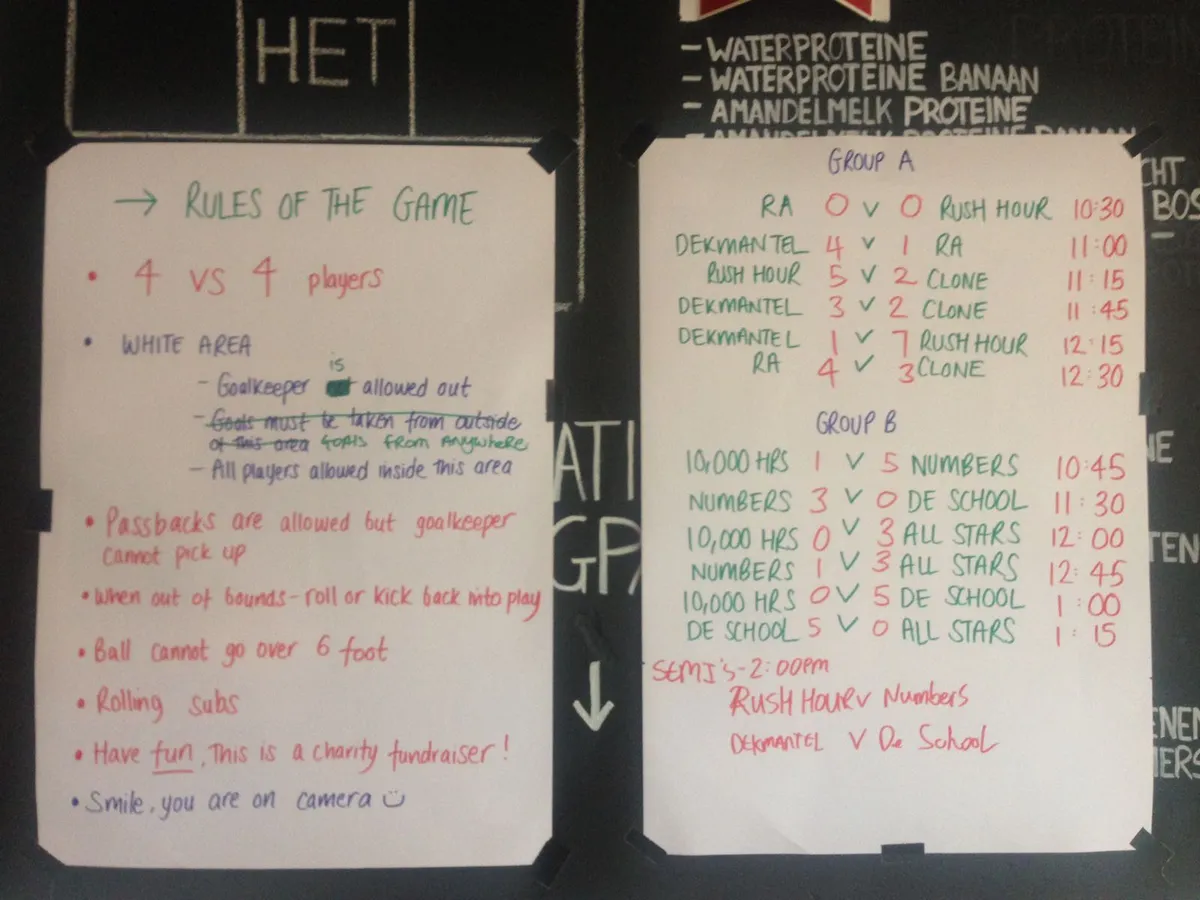 HET
- WATERPROTEINE
- WATERPROTEINE BANAAN
- AMANDELMELK PROTEINE
- AMANDELMELK PROTEINE BANAAN
→ RULES OF THE GAME
• 4 vs 4 players
• WHITE AREA
is
- Goalkeeper allowed out
- Goals must be taken from outside
of this area GOALS FROM ANYWHERE
- All players allowed inside this area
• Passbacks are allowed but goalkeeper
cannot pick up
• When out of bounds - roll or kick back into play
• Ball cannot go over 6 foot
• Rolling subs
• Have fun, This is a charity fundraiser!
• Smile, you are on camera ☺
GROUP A
RA 0 v 0 RUSH HOUR 10:30
DEKMANTEL 4 v 1 RA 11:00
RUSH HOUR 5 v 2 CLONE 11:15
DEKMANTEL 3 v 2 CLONE 11:45
DEKMANTEL 1 v 7 RUSH HOUR 12:15
RA 4 v 3 CLONE 12:30
GROUP B
10,000 HRS 1 v 5 NUMBERS 10:45
NUMBERS 3 v 0 DE SCHOOL 11:30
10,000 HRS 0 v 3 ALL STARS 12:00
NUMBERS 1 v 3 ALL STARS 12:45
10,000 HRS 0 v 5 DE SCHOOL 1:00
DE SCHOOL 5 v 0 ALL STARS 1:15
SEMI's - 2:00pm
RUSH HOUR v Numbers
DEKMANTEL v De School
ATI
GP
CHT
BOS
NE
TEN
ENEN
IERS